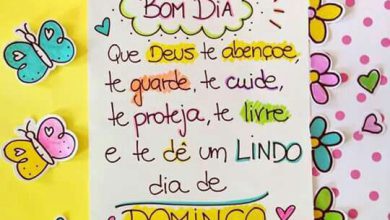 BOM DIA
Que DEUS te abençoe,
te guarde, te cuide,
te proteja, te livre
e te dê um LINDO
dia de
DOMINGO